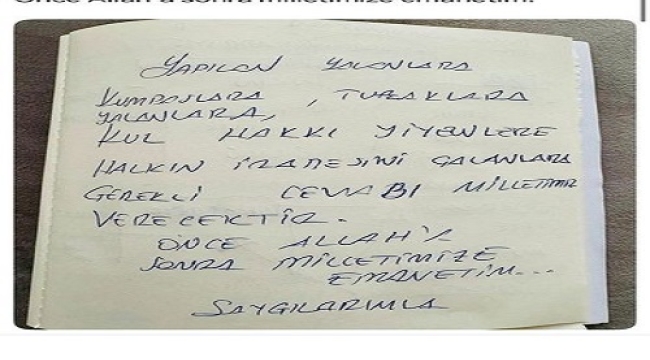 Önce Allah'a sonra milletimize emanetim.
YAPILAN YALANLARA
KUMPASLARA, TUZAKLARA
YALANLARA,
KUL HAKKI YİYENLERE
HALKIN İRADESİNİ ÇALANLARA
GEREKLİ CEVABI MİLLETİMİZ
VERECEKTİR.
ÖNCE ALLAH'A
SONRA MİLLETİMİZE
EMANETİM...
SAYGILARIMLA